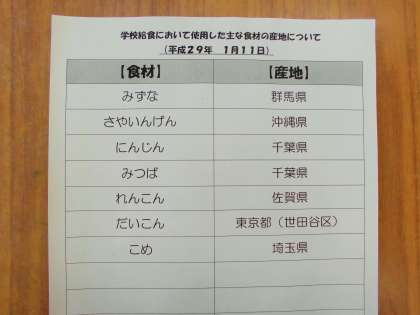 学校給食において使用した主な食材の産地について
(平成29年　1月11日)
【食材】　【産地】
みずな　群馬県
さやいんげん　沖縄県
にんじん　千葉県
みつば　千葉県
れんこん　佐賀県
だいこん　東京都（世田谷区）
こめ　埼玉県